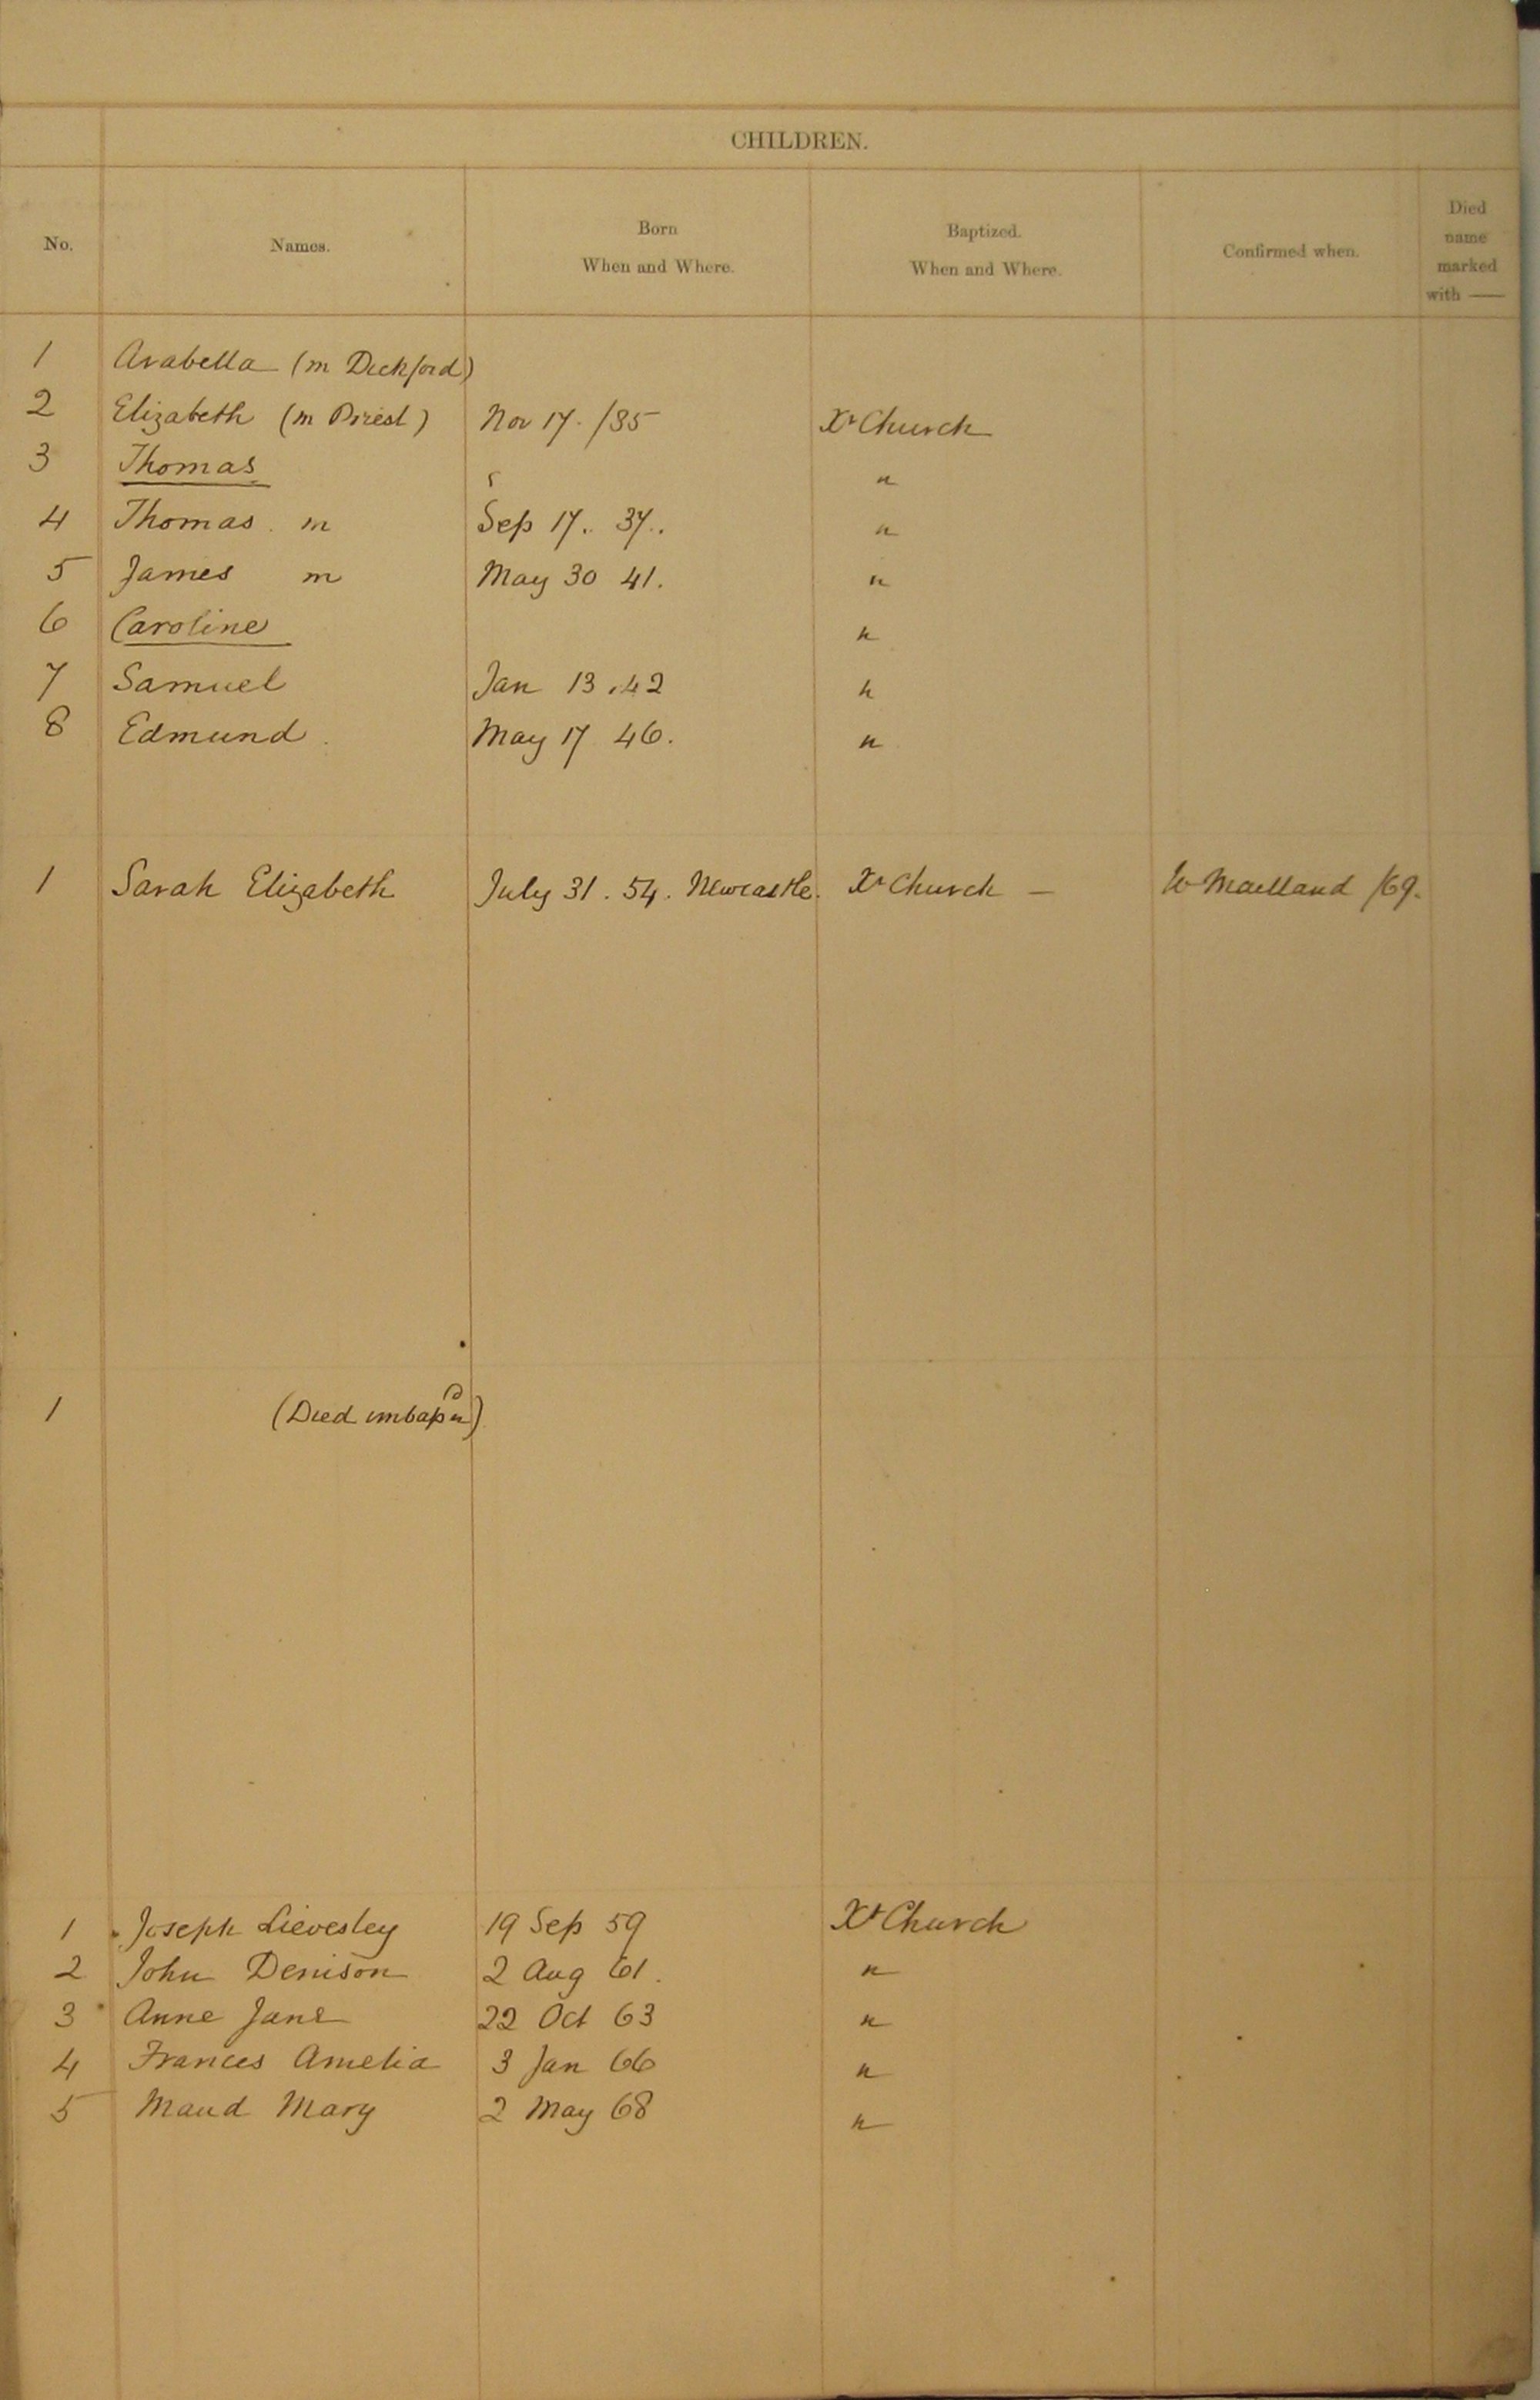 CHILDREN.
No. Names. Born When and Where. Baptized. When and Where. Confirmed when. Died name marked with —
1 Arabella (m Dickford)
2 Elizabeth (m Priest) Nov 17. /35 Xt Church
3 Thomas "
4 Thomas . m Sep 17.. 37.. "
5 James m May 30 41. "
6 Caroline "
7 Samuel Jan 13 . 42 "
8 Edmund . May 17 46. "
1 Sarah Elizabeth July 31 . 54 . Newcastle. Xt Church — W Maitland /69.
1 (Died unbapd)
1 Joseph Lievesley 19 Sep 59 Xt Church
2 John Denison 2 Aug 61. "
3 Anne Jane 22 Oct 63 "
4 Frances Amelia 3 Jan 66 "
5 Maud Mary 2 May 68 "